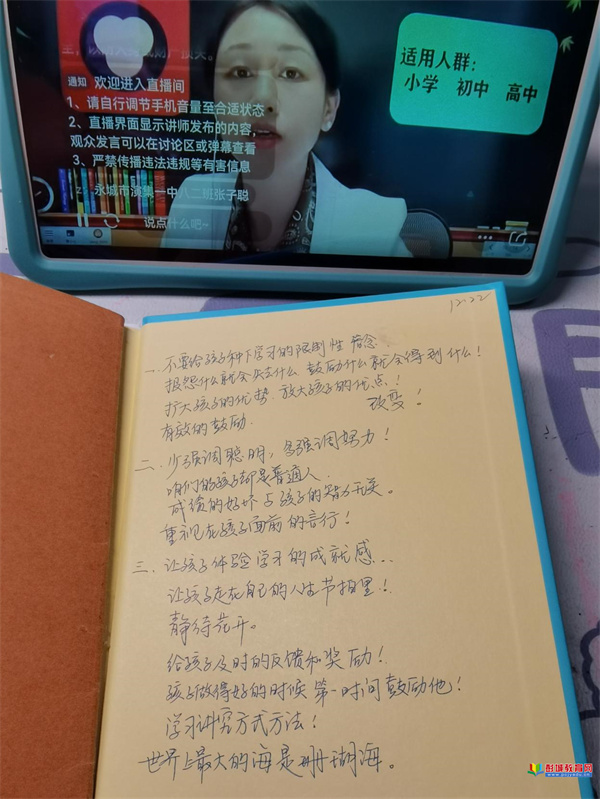 适用人群：
小学 初中 高中
通知 欢迎进入直播间
1、请自行调节手机音量至合适状态
2、直播界面显示讲师发布的内容，
观众发言可以在讨论区或弹幕查看
3、严禁传播违法违规等有害信息
永城市演集一中八二班张子聪
说点什么吧~
12.22
一、不要给孩子种下学习的限制性信念
报怨什么就会失去什么 鼓励什么就会得到什么！
扩大孩子的优势. 放大孩子的优点！
改变！
有效的鼓励.
二、少强调聪明，多强调努力！
咱们的孩子都是普通人.
成绩的好坏与孩子的智力无关。
重视在孩子面前的言行！
三、让孩子体验学习的成就感...
让孩子走在自己的人生节拍里.！
静待花开。
给孩子及时的反馈和奖励！
孩子做得好的时候第一时间鼓励他！
学习讲究方式方法！
世界上最大的海是珊瑚海。
彭城教育网